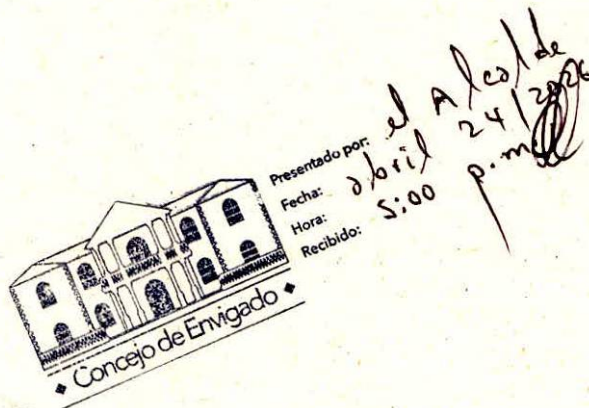 Presentado por: el Alcalde
Fecha: abril 24/2026
Hora: 5:00 p.m
Recibido:
Concejo de Envigado